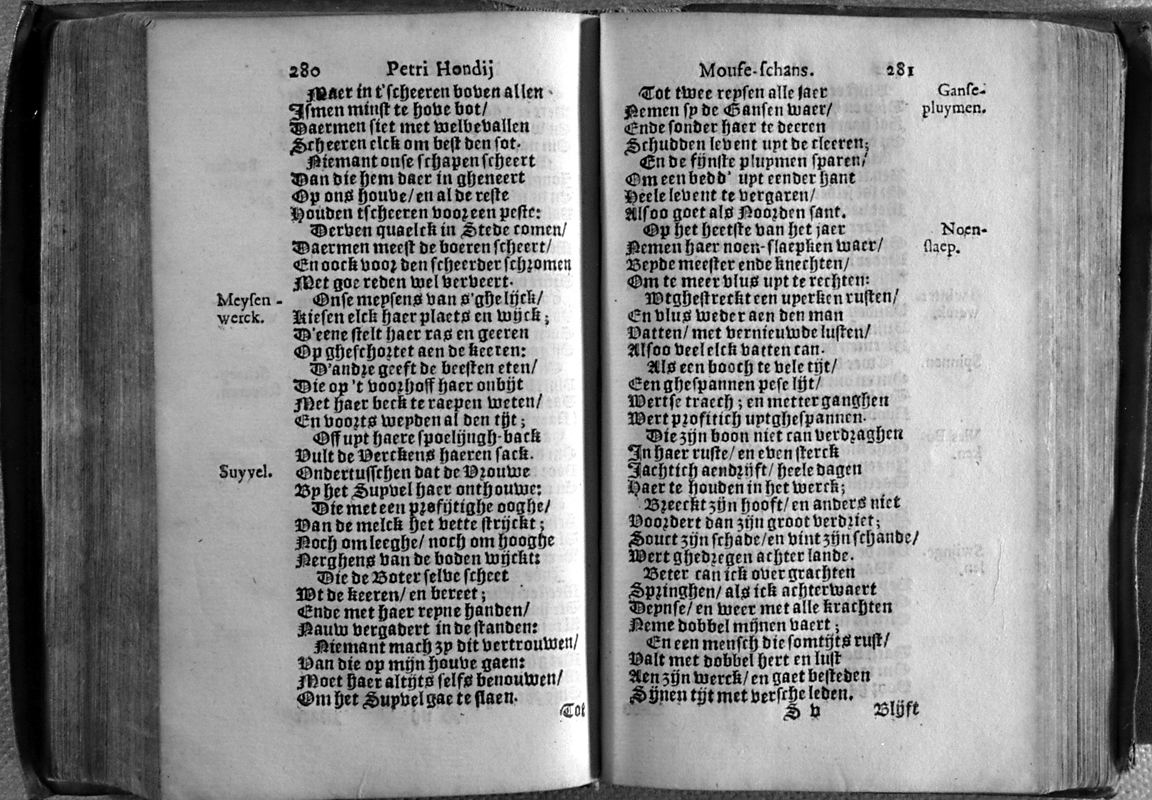 280 Petri Hondij
Maer in t'scheeren boven allen
Ismen minst te hove bot/
Daermen siet met welbevallen
Scheeren elck om best den sot.
Niemant onse schapen scheert
Dan die hem daer in gheneert
Op ons houve/ en al de reste
Houden tscheeren voor een peste:
Derven quaelck in Stede comen/
Daermen meest de boeren scheert/
En oock voor den scheerder schromen
Met goe reden wel verveert.
Meysen - Onse meysens van s'ghelijck/
werck. Kiesen elck haer plaets en wijck;
D'eene stelt haer ras en geeren
Op gheschortet aen de keeren:
D'andre geeft de beesten eten/
Die op 't voorhoff haer onbijt
Met haer beck te raepen weten/
En voorts weyden al den tijt;
Off uyt haere spoelijngh-back
Vult de Verckens haeren sack.
Suyvel. Ondertusschen dat de Vrouwe
By het Suyvel haer onthouwe:
Die met een profijtighe ooghe/
Van de melck het vette strijckt;
Noch om leeghe/ noch om hooghe
Nerghens van de boden wijckt:
Die de Boter selve scheet
Wt de keeren/ en bereet;
Ende met haer reyne handen/
Nauw vergadert in de standen:
Niemant mach zy dit vertrouwen/
Van die op mijn houve gaen:
Moet haer altijts selfs benouwen/
Om het Suyvel gae te slaen.
Tot
Mouse-schans. 281
Tot twee reysen alle jaer Ganse-
Nemen sy de Gansen waer/ pluymen.
Ende sonder haer te deeren
Schudden levent uyt de cleeren;
En de fijnste pluymen sparen/
Om een bedd' uyt eender hant
Heele levent te vergaren/
Alsoo goet als Noorden sant.
Op het heetste van het jaer Noen-
Nemen haer noen-slaepken waer/ slaep.
Beyde meester ende knechten/
Om te meer vlus uyt te rechten:
Wtghestreckt een uyerken rusten/
En vlus weder aen den man
Vatten/ met vernieuwde lusten/
Alsoo veel elck vatten can.
Als een booch te vele tijt/
Een ghespannen pese lijt/
Wertse traech; en metter ganghen
Wert profitich uytghespannen.
Die zijn boon niet can verdraghen
In haer ruste/ en even sterck
Jachtich aendrijft/ heele dagen
Haer te houden in het werck;
Breeckt zijn hooft/ en anders niet
Voordert dan zijn groot verdriet;
Souct zijn schade/ en vint zijn schande/
Wert ghedregen achter lande.
Beter can ick over grachten
Springhen/ als ick achterwaert
Deynse/ en weer met alle krachten
Neme dobbel mijnen vaert;
En een mensch die somtijts rust/
Valt met dobbel hert en lust
Aen zijn werck/ en gaet besteden
Sijnen tijt met versche leden.
S v Blijft